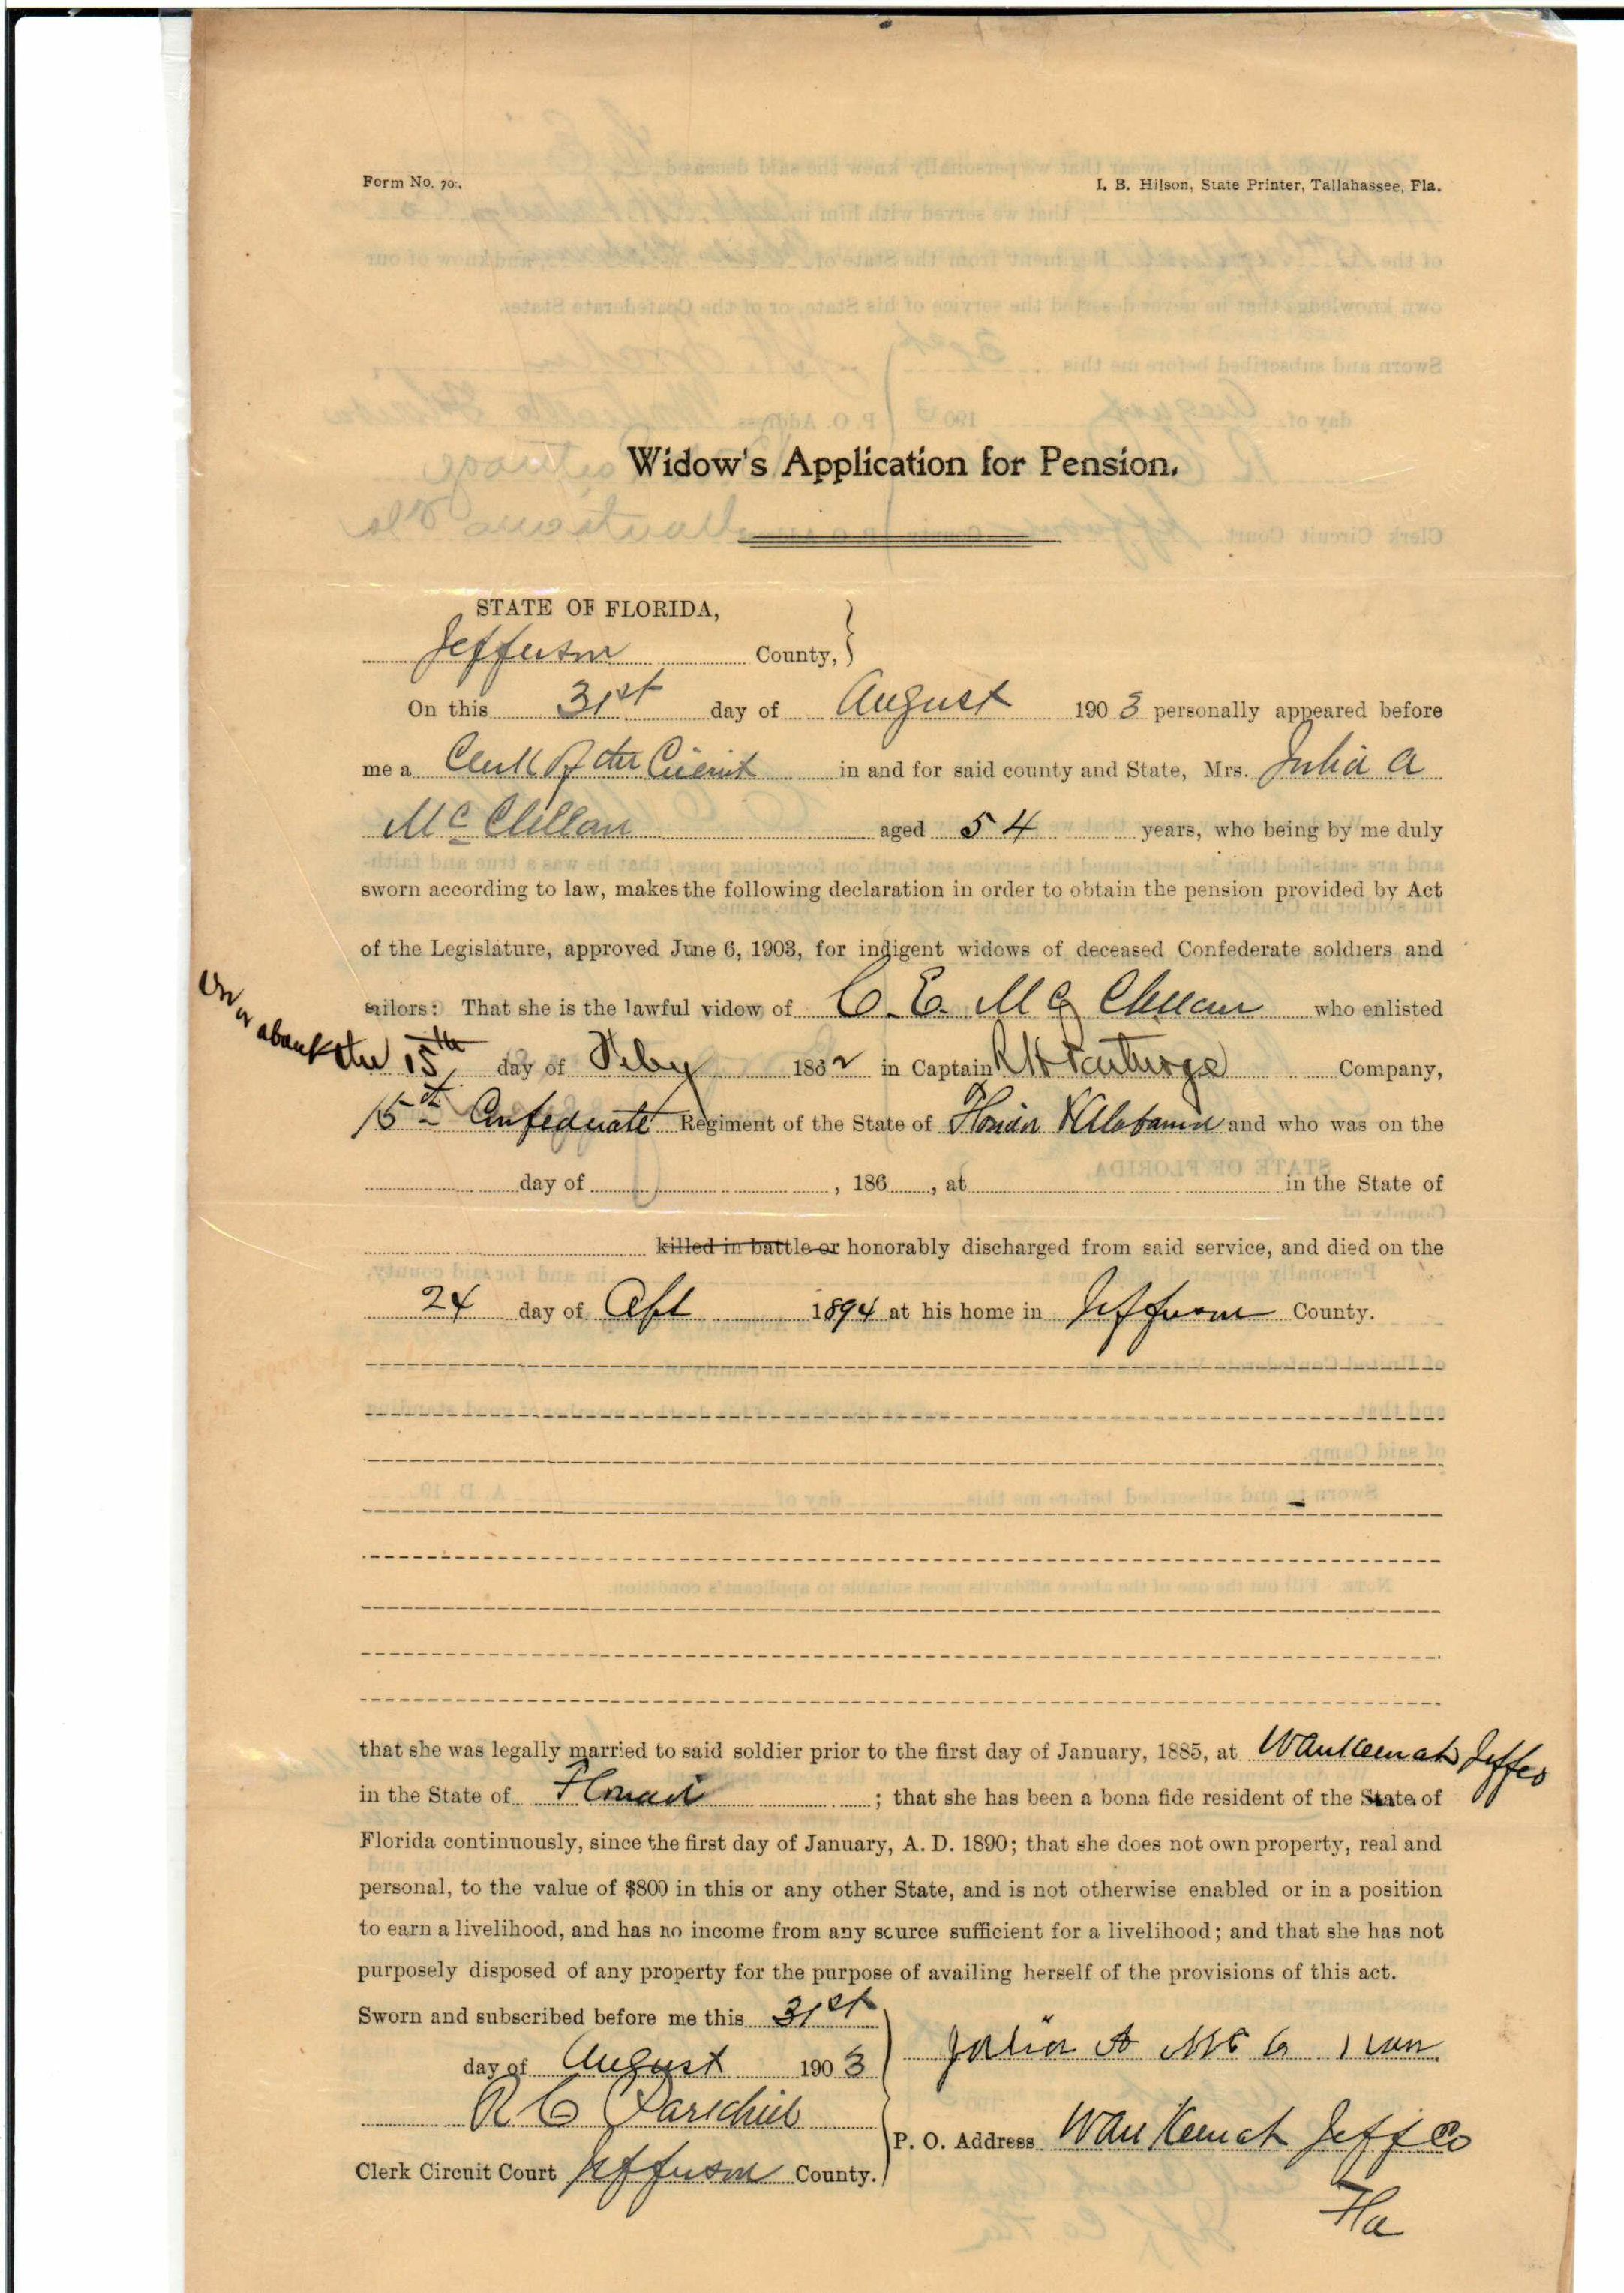 Form No. 70.
I. B. Hilson, State Printer, Tallahassee, Fla.
Widow's Application for Pension.
STATE OF FLORIDA,
Jefferson County,
On this 31st day of August 1903 personally appeared before
me a Clerk of the Circuit in and for said county and State, Mrs. Julia A
McClellan aged 54 years, who being by me duly
sworn according to law, makes the following declaration in order to obtain the pension provided by Act
of the Legislature, approved June 6, 1903, for indigent widows of deceased Confederate soldiers and
sailors: That she is the lawful widow of C. E. McClellan who enlisted
On or about the 15th day of Feby 1862 in Captain R H Partridge Company,
15th Confederate Regiment of the State of Florida & Alabama and who was on the
day of , 186 , at in the State of
killed in battle or honorably discharged from said service, and died on the
24 day of 1894 at his home in Jefferson County.
that she was legally married to said soldier prior to the first day of January, 1885, at Waukeenah Jeff Co
in the State of Florida ; that she has been a bona fide resident of the State of
Florida continuously, since the first day of January, A. D. 1890; that she does not own property, real and
personal, to the value of $800 in this or any other State, and is not otherwise enabled or in a position
to earn a livelihood, and has no income from any source sufficient for a livelihood; and that she has not
purposely disposed of any property for the purpose of availing herself of the provisions of this act.
Sworn and subscribed before me this 31st
day of August 1903
Julia A
R C
P. O. Address Waukeenah Jeff Co
Clerk Circuit Court Jefferson County.
Fla